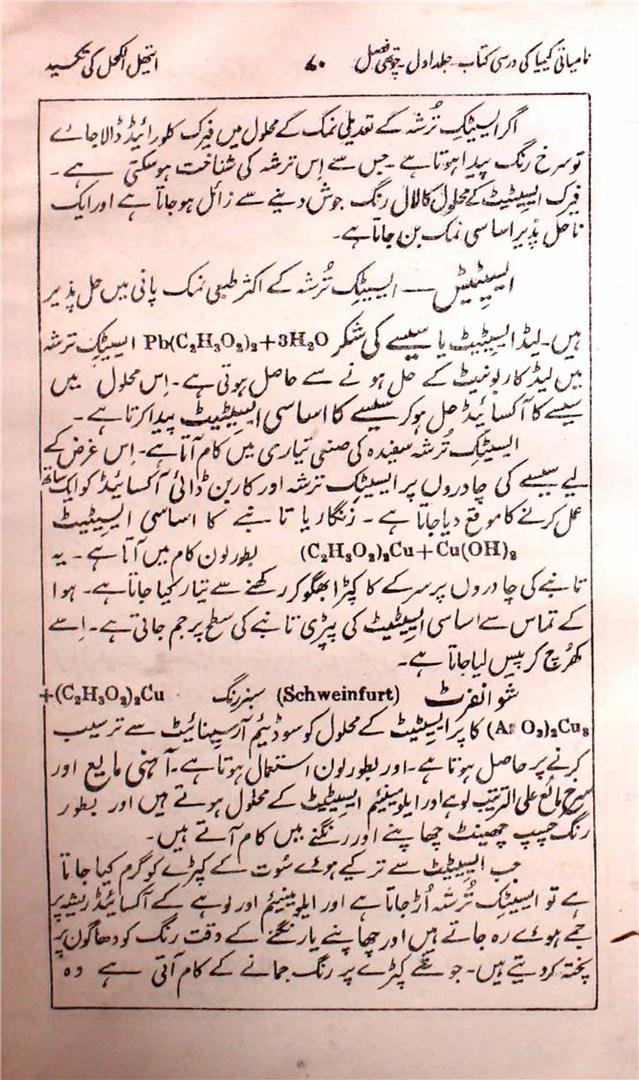 نامیاتی کیمیا کی درسی کتاب۔ جلد اول۔ چوتھی فصل ۷۰ ایتھیل الکحل کی تکسید
اگر ایسیٹک تُرشہ کے تعدیلی نمک کے محلول میں فیرک کلورائیڈ ڈالا جائے
تو سرخ رنگ پیدا ہوتا ہے۔ جس سے اِس ترشہ کی شناخت ہوسکتی ہے۔
فیرک ایسیٹیٹ کے محلول کا لال رنگ جوش دینے سے زائل ہوجاتا ہے اور ایک
ناحل پذیر اساسی نمک بن جاتا ہے۔
ایسیٹیٹس — ایسیٹک تُرشہ کے اکثر طبعی نمک پانی میں حل پذیر
ہیں۔ لیڈ ایسیٹیٹ یا سیسے کی شکر Pb(C₂H₃O₂)₂+3H₂O ایسیٹک ترشہ
میں لیڈ کاربونیٹ کے حل ہونے سے حاصل ہوتی ہے۔ اِس محلول میں
سیسے کا آکسائیڈ حل ہوکر سیسے کا اساسی ایسیٹیٹ پیدا کرتا ہے۔
ایسیٹک تُرشہ سفیدہ کی صنعتی تیاری میں کام آتا ہے۔ اِس غرض کے
لیے سیسے کی چادروں پر ایسیٹک ترشہ اور کاربن ڈائی آکسائیڈ کو ایک ساتھ
عمل کرنے کا موقع دیا جاتا ہے۔ زنگار یا تانبے کا اساسی ایسیٹیٹ
(C₂H₃O₂)₂Cu+Cu(OH)₂ بطور لون کام میں آتا ہے۔ یہ
تانبے کی چادروں پر سرکے کا کپڑا بھگو کر رکھنے سے تیار کیا جاتا ہے۔ ہوا
کے تماس سے اساسی ایسیٹیٹ کی پپڑی تانبے کی سطح پر جم جاتی ہے۔ اِسے
کھرُچ کر پیس لیا جاتا ہے۔
شوائنفرٹ (Schweinfurt) سبز رنگ (C₂H₃O₂)₂Cu+
(As O₃)₂Cu₃ کاپر ایسیٹیٹ کے محلول کو سوڈیئم آرسینائیٹ سے ترسیب
کرنے پر حاصل ہوتا ہے۔ اور بطور لون استعمال ہوتا ہے۔ آہنی مایع اور
سرخ مائع علی الترتیب لوہے اور ایلومینیئم ایسیٹیٹ کے محلول ہوتے ہیں اور بطور
رنگ چسپ چھینٹ چھاپنے اور رنگنے میں کام آتے ہیں۔
جب ایسیٹیٹ سے تر کیے ہوئے سُوت کے کپڑے کو گرم کیا جاتا
ہے تو ایسیٹک تُرشہ اُڑ جاتا ہے اور ایلومینیئم اور لوہے کے آکسائیڈ ریشہ پر
جمے ہوئے رہ جاتے ہیں اور چھاپنے یا رنگنے کے وقت رنگ کو دھاگوں پر
پختہ کردیتے ہیں۔ جو شئے کپڑے پر رنگ جمانے کے کام آتی ہے وہ